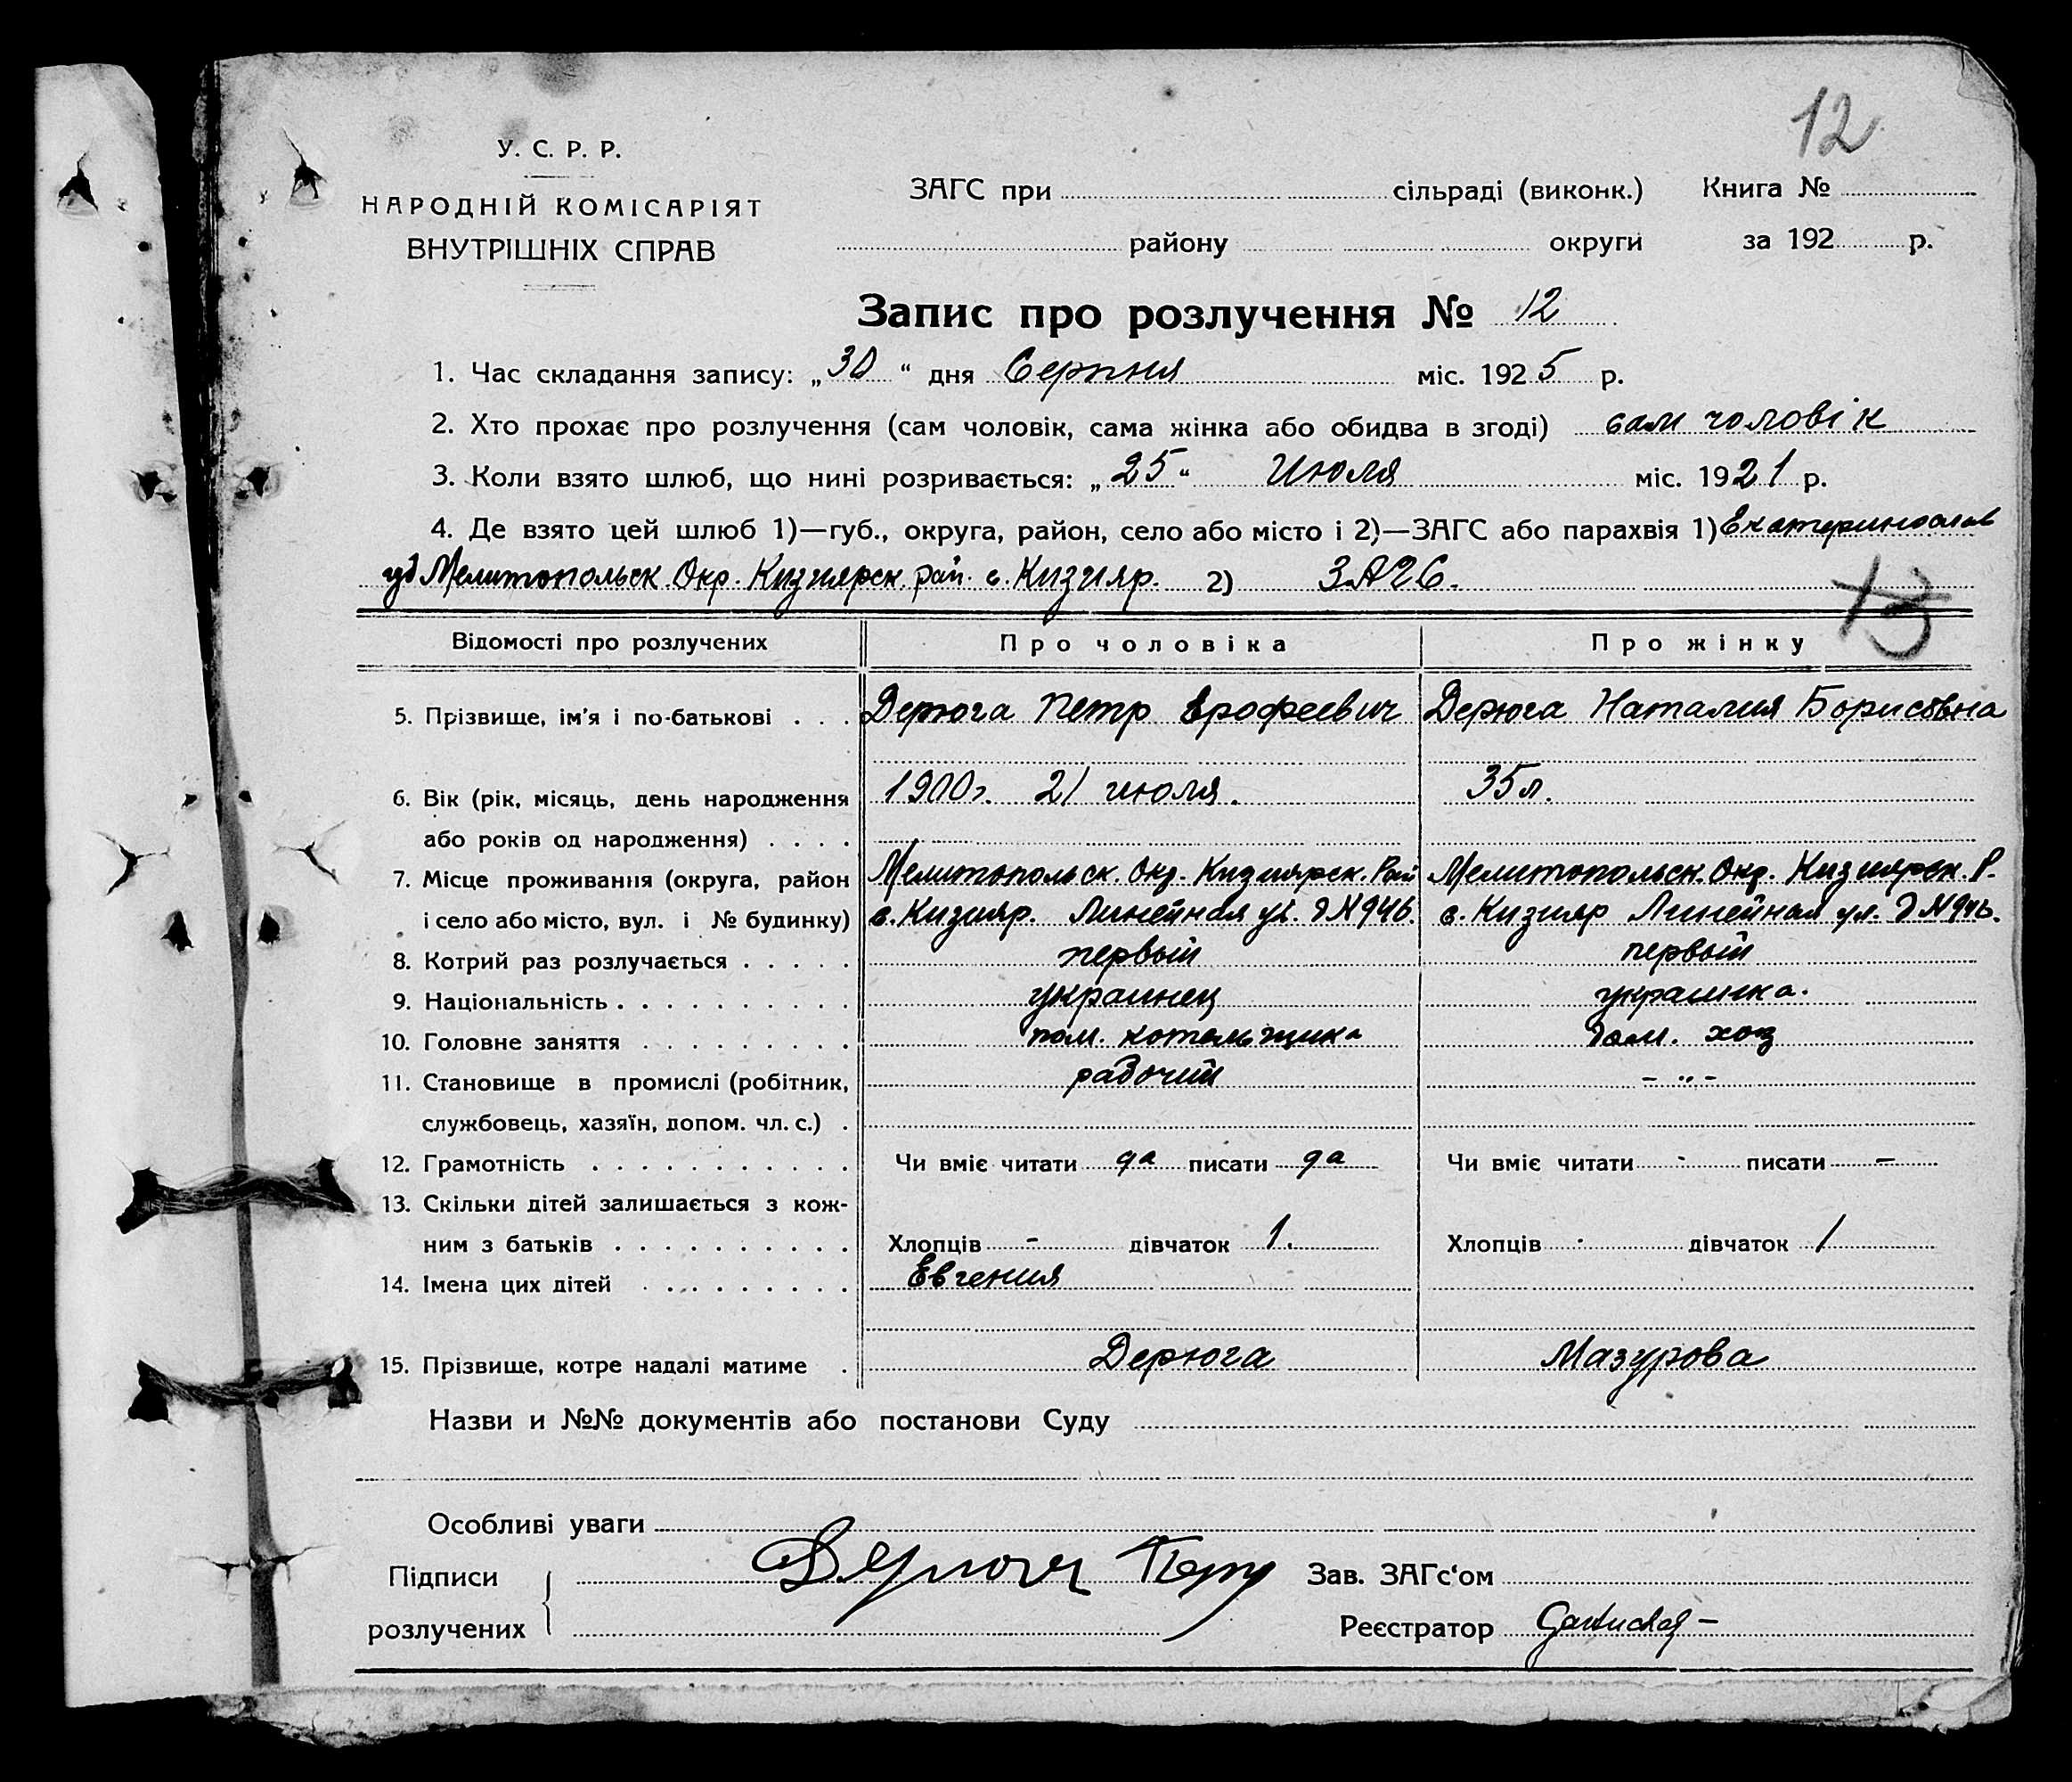 12
У. С. Р. Р.
НАРОДНІЙ КОМІСАРІЯТ
ВНУТРІШНІХ СПРАВ
ЗАГС при сільраді (виконк.) Книга №
району округи за 192 р.
Запис про розлучення № 12
1. Час складання запису: „30“ дня Серпня міс. 1925 р.
2. Хто прохає про розлучення (сам чоловік, сама жінка або обидва в згоді) сам чоловік
3. Коли взято шлюб, що нині розривається: „25“ Июля міс. 1921 р.
4. Де взято цей шлюб 1)—губ., округа, район, село або місто і 2)—ЗАГС або парахвія 1) Екатеринослав
Мелитопольск. Окр. Кизиярск. рай. с. Кизияр. 2) ЗАГС.
13
Відомості про розлучених Про чоловіка Про жінку
5. Прізвище, ім'я і по-батькові . . . Дерюга Петр Ерофеевич Дерюга Наталия Борисовна
6. Вік (рік, місяць, день народження 1900г. 21 июля. 35 л.
або років од народження) . . . .
7. Місце проживання (округа, район Мелитопольск. Окр. Кизиярск. Рай Мелитопольск. Окр. Кизиярск. Р.
і село або місто, вул. і № будинку) с. Кизияр. Линейная ул. д N 946. с. Кизияр Линейная ул. д N 946.
8. Котрий раз розлучається . . . . . первый первый
9. Національність . . . . . . . . . . украинец украинка.
10. Головне заняття . . . . . . . . . пом. котельщика дом. хоз
11. Становище в промислі (робітник, рабочий - „ -
службовець, хазяїн, допом. чл. с.) .
12. Грамотність . . . . . . . . . . . Чи вміє читати да писати да Чи вміє читати - писати -
13. Скільки дітей залишається з кож-
ним з батьків . . . . . . . . . . Хлопців - дівчаток 1. Хлопців - дівчаток 1
14. Імена цих дітей . . . . . . . . . Евгения
15. Прізвище, котре надалі матиме . Дерюга Мазурова
Назви и №№ документів або постанови Суду
Особливі уваги
Підписи Дерюга Петр Зав. ЗАГс‘ом
розлучених Реєстратор